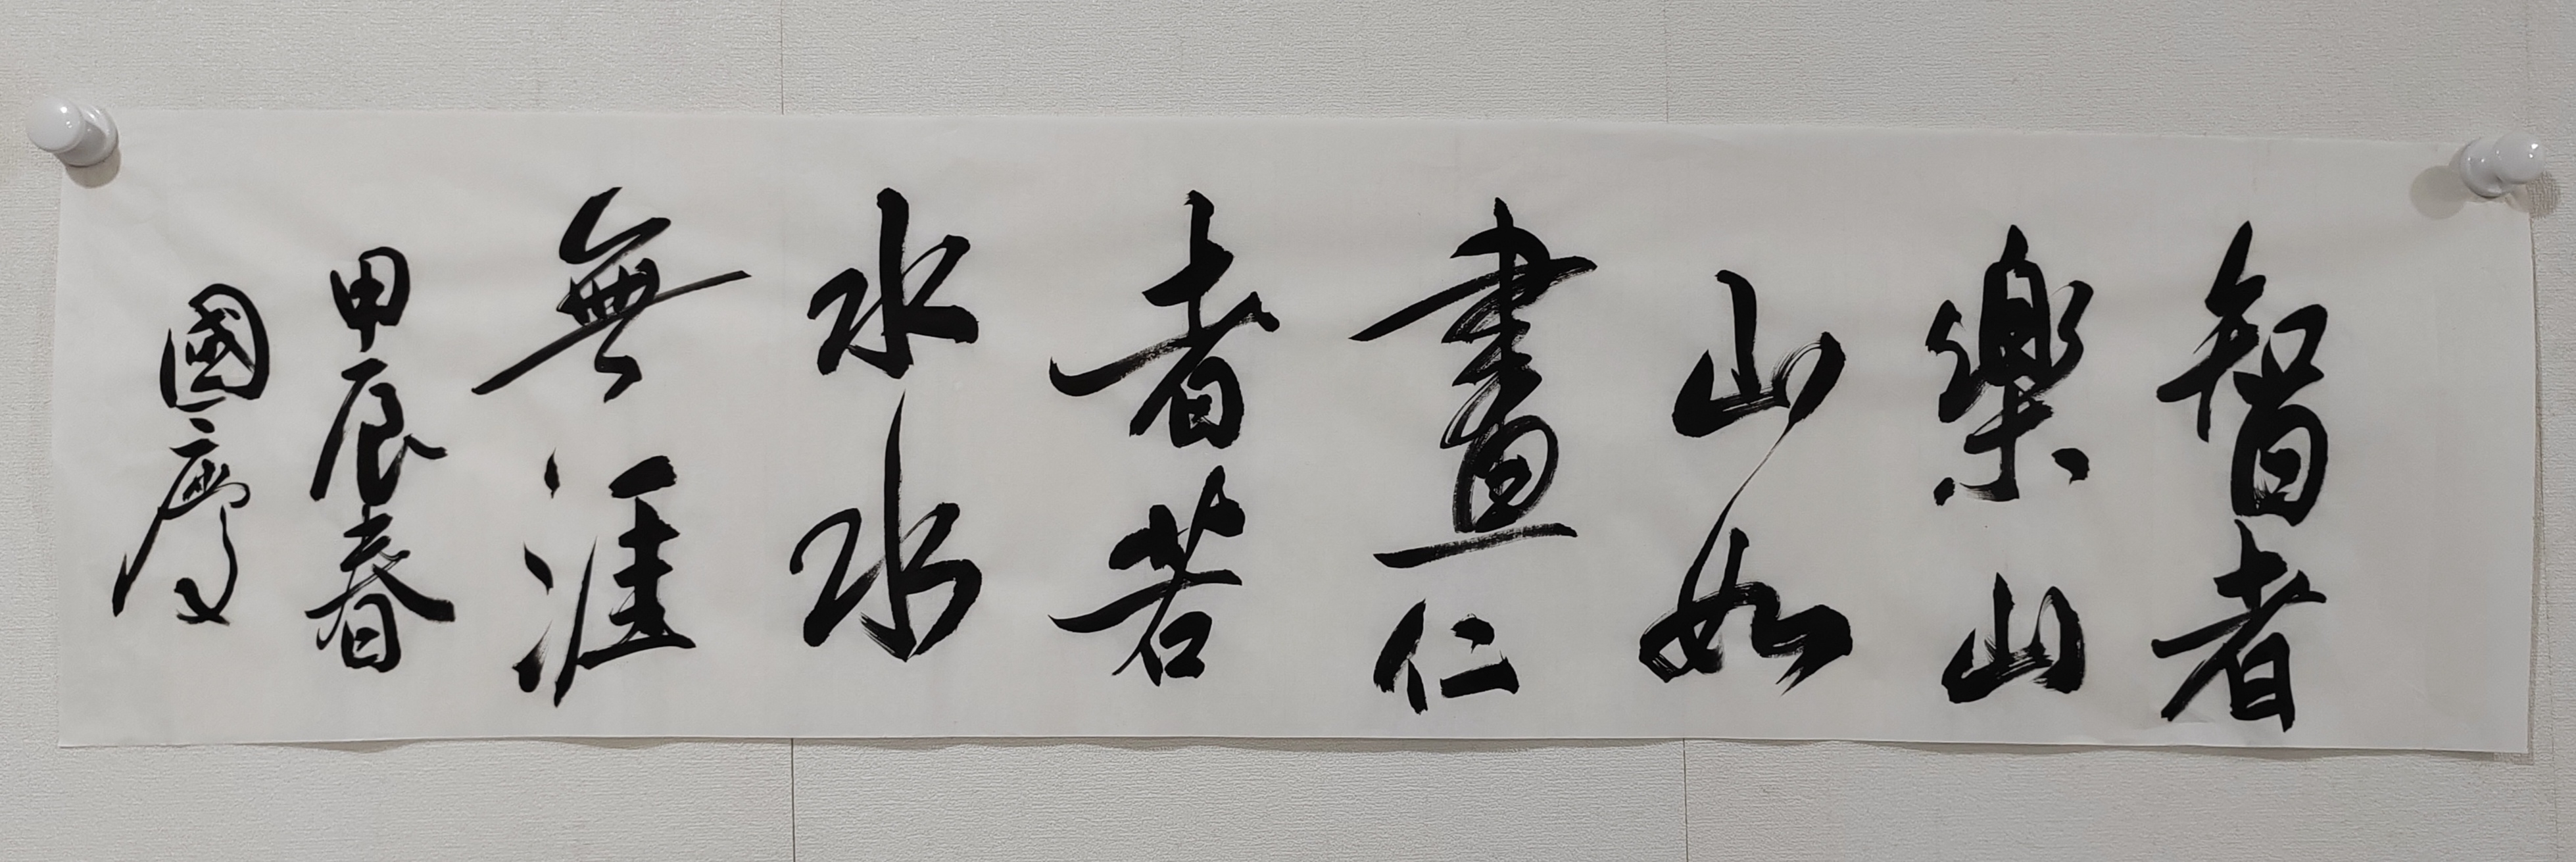 智者
樂山
山如
畫仁
者若
水水
無涯
甲辰春
國慶